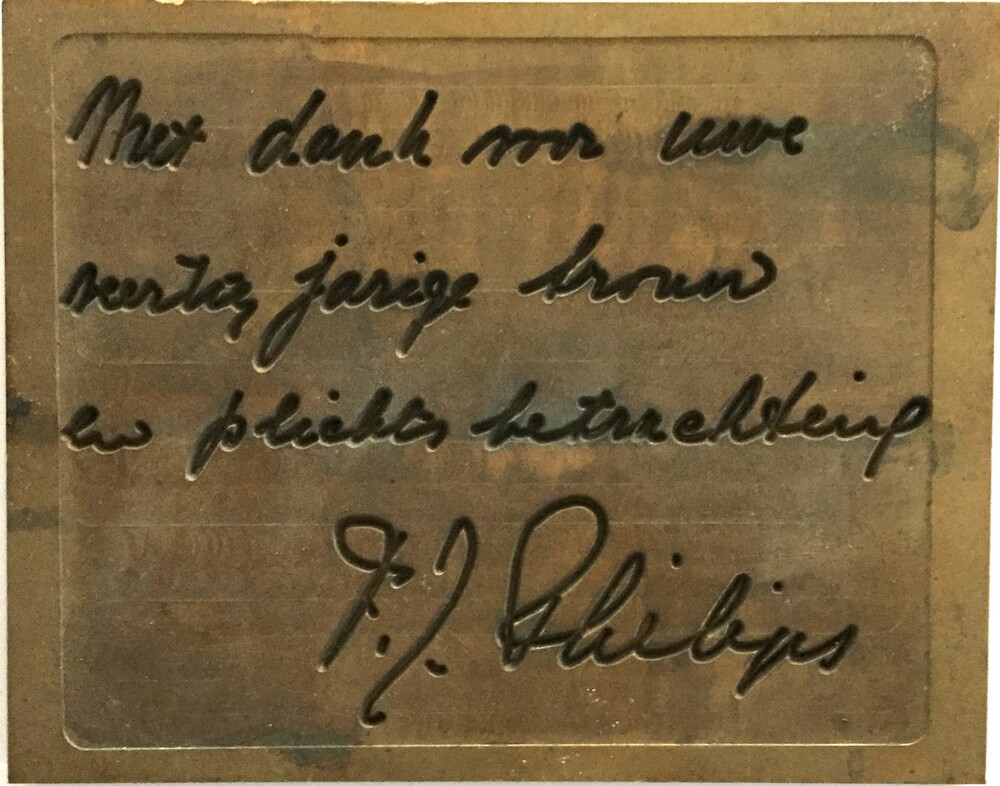 Met dank voor uwe
veertig jarige trouw
en plichts betrachting
F. J. Philips